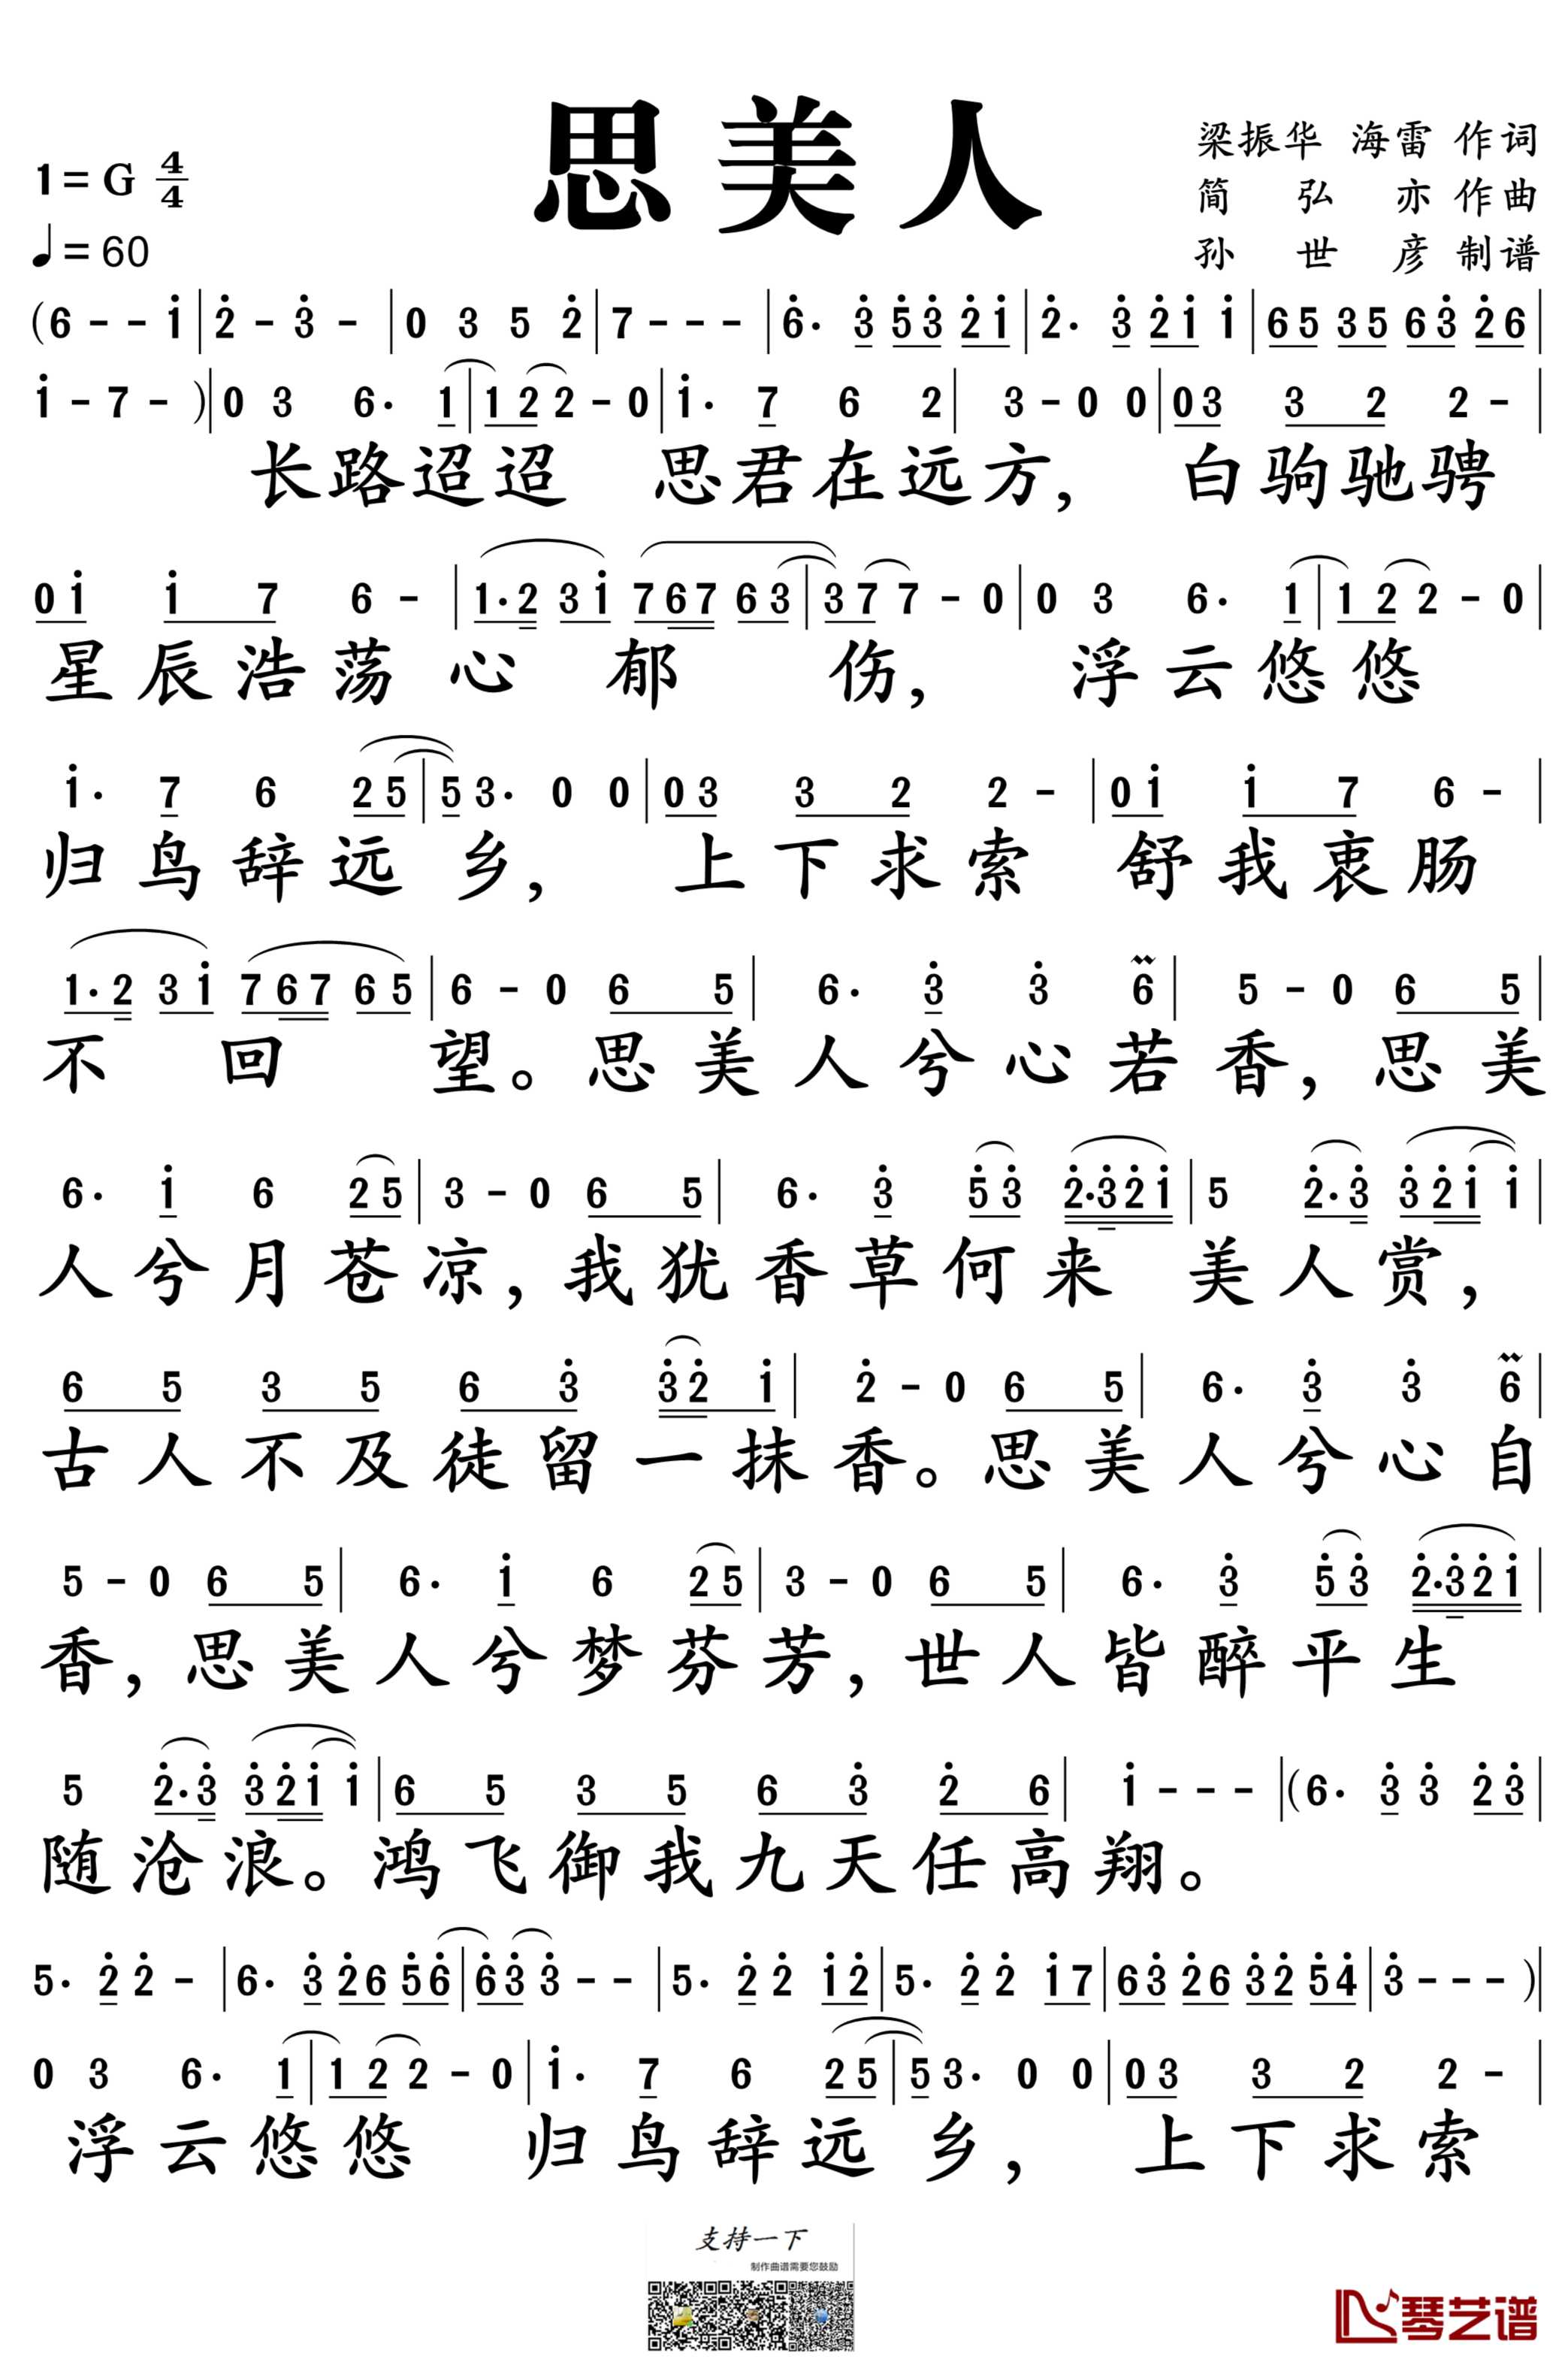 思美人
1=G 4/4
♩=60
梁振华 海雷 作词
简弘亦 作曲
孙世彦 制谱
(6 - - i | 2̇ - 3̇ - | 0 3 5 2̇ | 7 - - - | 6̇· 3̇ 5̇3̇ 2̇i | 2̇· 3̇ 2̇i i | 65 35 63̇ 2̇6 |
i - 7 - ) | 0 3 6· 1 | 1 2 2 - 0 | i· 7 6 2 | 3 - 0 0 | 03 3 2 2 - |
长路迢迢 思君在远方, 白驹驰骋
0i i 7 6 - | 1·2 3i 767 63 | 37 7 - 0 | 0 3 6· 1 | 1 2 2 - 0 |
星辰浩荡心郁伤, 浮云悠悠
i· 7 6 25 | 5 3· 0 0 | 03 3 2 2 - | 0i i 7 6 - |
归鸟辞远乡, 上下求索 舒我衷肠
1·2 3i 767 65 | 6 - 0 6 5 | 6· 3̇ 3̇ 6 | 5 - 0 6 5 |
不回望。思美人兮心若香, 思美
6· i 6 25 | 3 - 0 6 5 | 6· 3̇ 5̇3̇ 2̇·3̇2̇i | 5 2̇·3̇ 3̇2̇i i |
人兮月苍凉, 我犹香草何来 美人赏,
6 5 3 5 6 3̇ 3̇2̇ i | 2̇ - 0 6 5 | 6· 3̇ 3̇ 6 |
古人不及徒留一抹香。思美人兮心自
5 - 0 6 5 | 6· i 6 25 | 3 - 0 6 5 | 6· 3̇ 5̇3̇ 2̇·3̇2̇i |
香, 思美人兮梦芬芳, 世人皆醉平生
5 2̇·3̇ 3̇2̇i i | 6 5 3 5 6 3̇ 2̇ 6 | i - - - | (6· 3̇ 3̇ 2̇3̇ |
随沧浪。鸿飞御我九天任高翔。
5· 2̇ 2̇ - | 6· 3̇ 2̇6 5̇6̇ | 6̇3̇ 3̇ - - | 5· 2̇ 2̇ i2̇ | 5· 2̇ 2̇ i7 | 63̇ 2̇6 3̇2̇ 5̇4̇ | 3̇ - - - )
0 3 6· 1 | 1 2 2 - 0 | i· 7 6 25 | 5 3· 0 0 | 03 3 2 2 - |
浮云悠悠 归鸟辞远乡, 上下求索
支持一下
制作曲谱需要您鼓励
琴艺谱